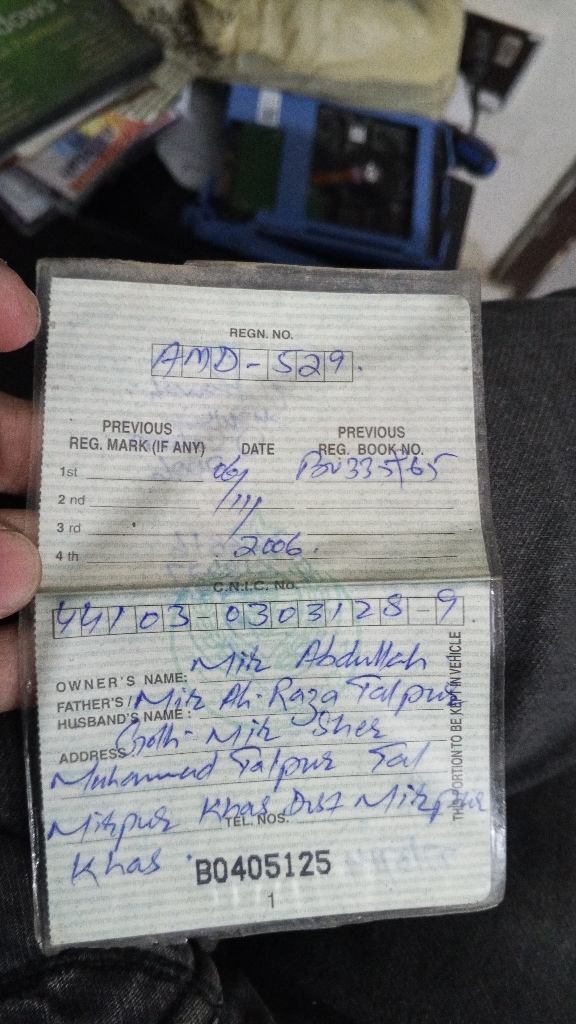 REGN. NO.
AMD-529.
PREVIOUS
REG. MARK (IF ANY)
DATE
PREVIOUS
REG. BOOK NO.
1st 06/
2 nd /11/
3 rd
4 th 2006.
C.N.I.C. No.
44103-0303128-9
OWNER'S NAME: Mir Abdullah
FATHER'S / Mir Ali Raza Talpur
HUSBAND'S NAME :
ADDRESS: Goth- Mir Sher
Muhammad Talpur Tal
Mirpur Khas Dist Mirpur
TEL. NOS.
Khas.
B0405125
1
THIS PORTION TO BE KEPT IN VEHICLE